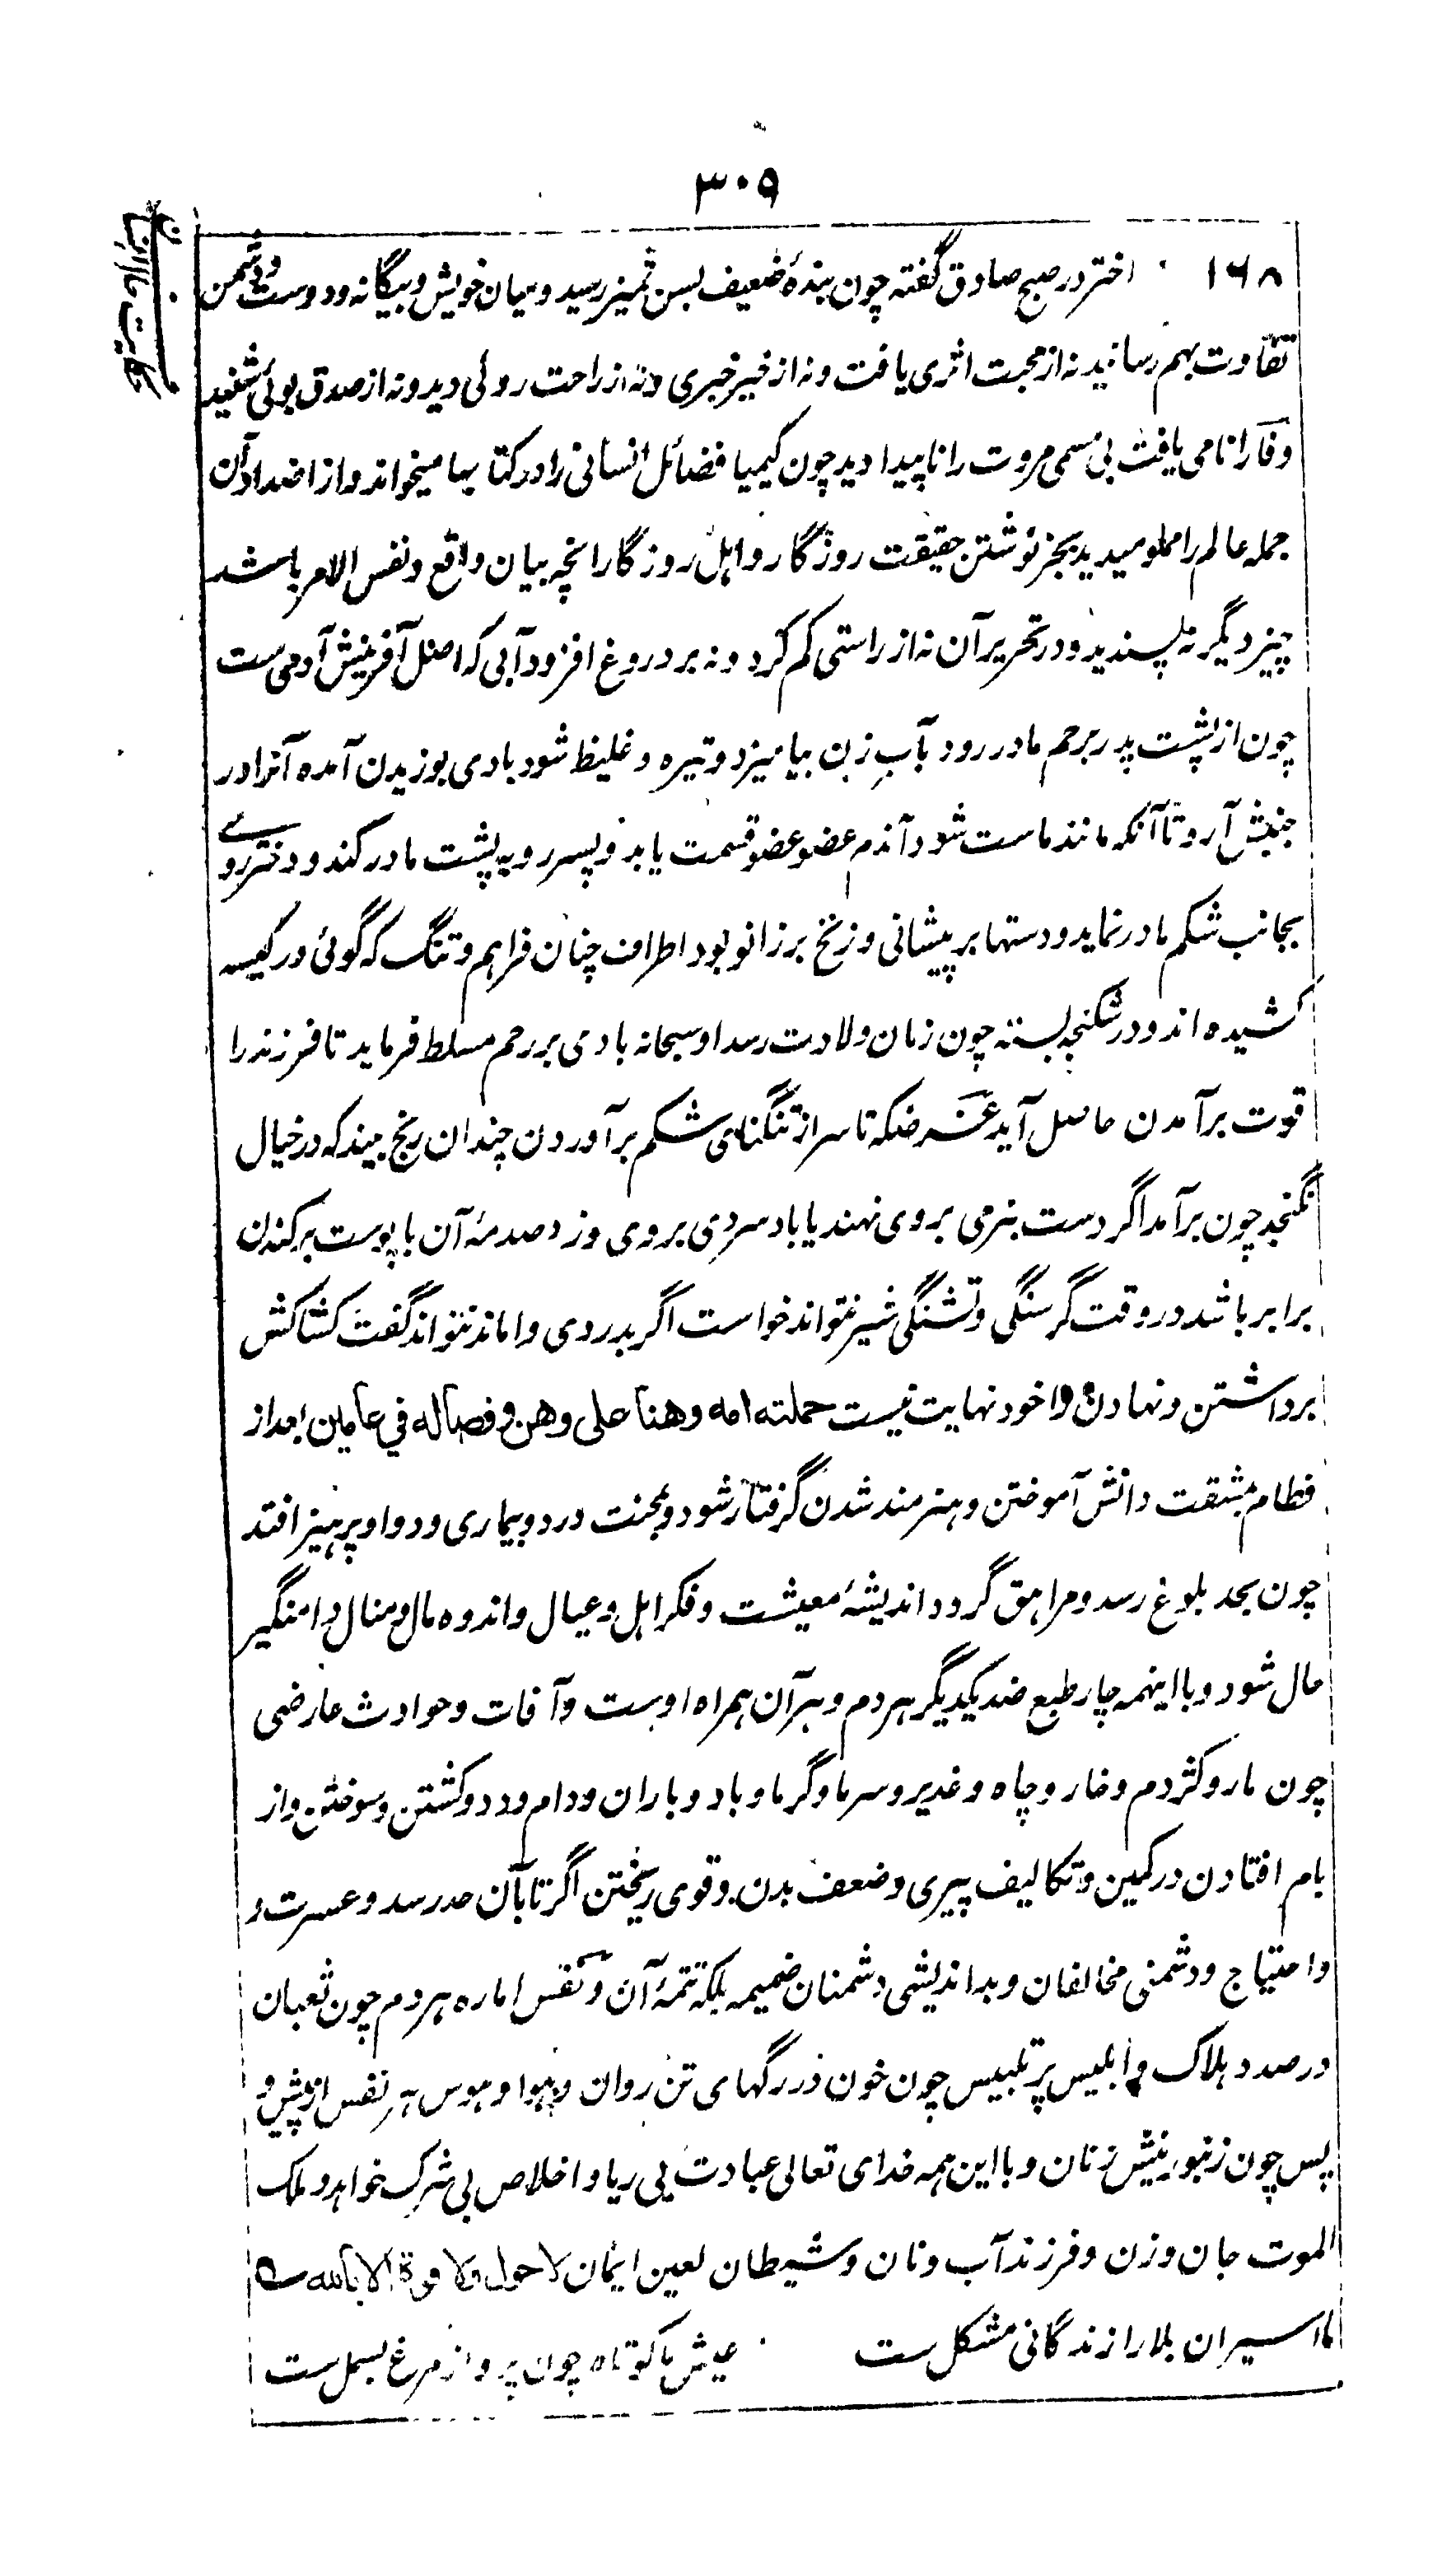 ۳۰۹
۱۶۸ اختر در صبح صادق گفته چون بندهٔ ضعیف بسن تمیز رسید و میان خویش و بیگانه و دوست و دشمن
تفاوت بهم رسانید نه از محبت اثری یافت و نه از خیر خبری و نه از راحت روئی دید و نه از صدق بوئی شنید
وفا را نامی یافت بی مسمی مروت را ناپیدا دید چون کیمیا فضائل انسانی را در کتابها میخواند و از اضداد آن
جمله عالم را مملو میدید بجز نوشتن حقیقت روزگار و اهل روزگار انچه بیان واقع و نفس الامر باشد
چیز دیگر نه پسندید و در تحریر آن نه از راستی کم کرد و نه بر دروغ افزود آبی که اصل آفرینش آدمی ست
چون از پشت پدر برحم مادر رود بآب زن بیامیزد و تیره و غلیظ شود بادی بوزیدن آمده آنرا در
جنبش آرد تا آنکه مانند ماست شود آندم عضو عضو قسمت یابد و پسر رو به پشت مادر کند و دختر روے
بجانب شکم مادر نماید و دستها بر پیشانی و زنخ بر زانو بود اطراف چنان فراهم و تنگ که گوئی در کیسه
کشیده اند و در شکنجه بسته چون زمان ولادت رسد او سبحانه بادی بر رحم مسلط فرماید تا فرزند را
قوت برآمدن حاصل آید غرضکه تا سر از تنگنای شکم برآوردن چندان رنج بیند که در خیال
نگنجد چون برآمد اگر دست بنرمی بر وی نهند یا باد سردی بر وی وزد صدمهٔ آن با پوست برکندن
برابر باشد در وقت گرسنگی و تشنگی شیر نتواند خواست اگر بدردی واماند نتواند گفت کشاکش
برداشتن و نهادن را خود نهایت نیست حملته امه وهنا علی وهن و فصاله فی عامین بعد از
فطام بمشقت دانش آموختن و هنرمند شدن گرفتار شود و بمحنت درد و بیماری و دوا و پرهیز افتد
چون بحد بلوغ رسد و مراهق گردد اندیشهٔ معیشت و فکر اهل و عیال و اندوه مال و منال دامنگیر
حال شود و با اینهمه چار طبع ضد یکدیگر هر دم و هر آن همراه اوست و آفات و حوادث عارضی
چون مار و کژدم و خار و چاه و غدیر و سرما و گرما و باد و باران و دام و دد و کشتن و سوختن و از
بام افتادن در کمین و تکالیف پیری و ضعف بدن و قوی ریختن اگر تا بآن حد رسد و عسرت و
و احتیاج و دشمنی مخالفان و بداندیشی دشمنان ضمیمه بلکه تتمهٔ آن و نفس اماره هر دم چون ثعبان
در صدد هلاک و ابلیس پر تلبیس چون خون در رگهای تن روان و هوا و هوس هر نفس از پیش و
پس چون زنبور نیش زنان و با این همه خدای تعالی عبادت بی ریا و اخلاص بی شرک خواهد و ملک
الموت جان و زن و فرزند آب و نان و شیطان لعین ایمان لا حول ولا قوة الا بالله
ما اسیران بلا را زندگانی مشکل ست عیش ما کوتاه چون پرواز مرغ بسمل ست